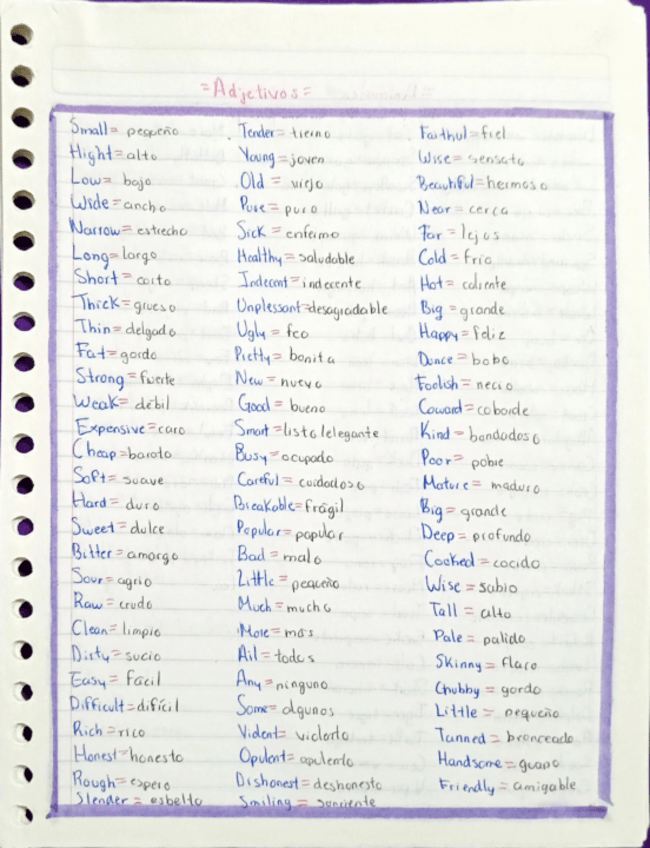 =Adjetivos=
Small= pequeño
Hight=alto
Low= bajo
Wide=ancho
Narrow= estrecho
Long=largo
Short= corto
Thick=grueso
Thin=delgado
Fat=gordo
Strong=fuerte
Weak= débil
Expensive=caro
Cheap=barato
Soft= suave
Hard= duro
Sweet= dulce
Bitter=amargo
Sour=agrio
Raw= crudo
Clean=limpio
Dirty=sucio
Easy= facil
Difficult=difícil
Rich=rico
Honest=honesto
Rough=espero
Slender = esbelto
Tender= tierno
Young=joven
Old = viejo
Pure= puro
Sick = enfermo
Healthy= saludable
Indecent=indecente
Unplessant=desagradable
Ugly = feo
Pretty= bonita
New= nuevo
Good= bueno
Smart=listo/elegante
Busy= ocupado
Careful= cuidadoso
Breakable=frágil
Popular= popular
Bad= malo
Little= pequeño
Much= mucho
More= más
All= todos
Any= ninguno
Some= algunos
Opulent= opulento
Dishonest= deshonesto
Smiling = sonriente
Faithul=fiel
Wise= sensato
Beautiful=hermoso
Near= cerca
Far= lejos
Cold= frío
Hot= caliente
Big= grande
Happy= feliz
Dunce= bobo
Foolish= necio
Coward= cobarde
Kind= bondadoso
Poor= pobre
Mature= maduro
Big= grande
Deep= profundo
Cooked= cocido
Wise= sabio
Tall= alto
Pale= palido
Skinny= flaco
Chubby= gordo
Little= pequeño
Tanned= bronceado
Handsome=guapo
Friendly= amigable